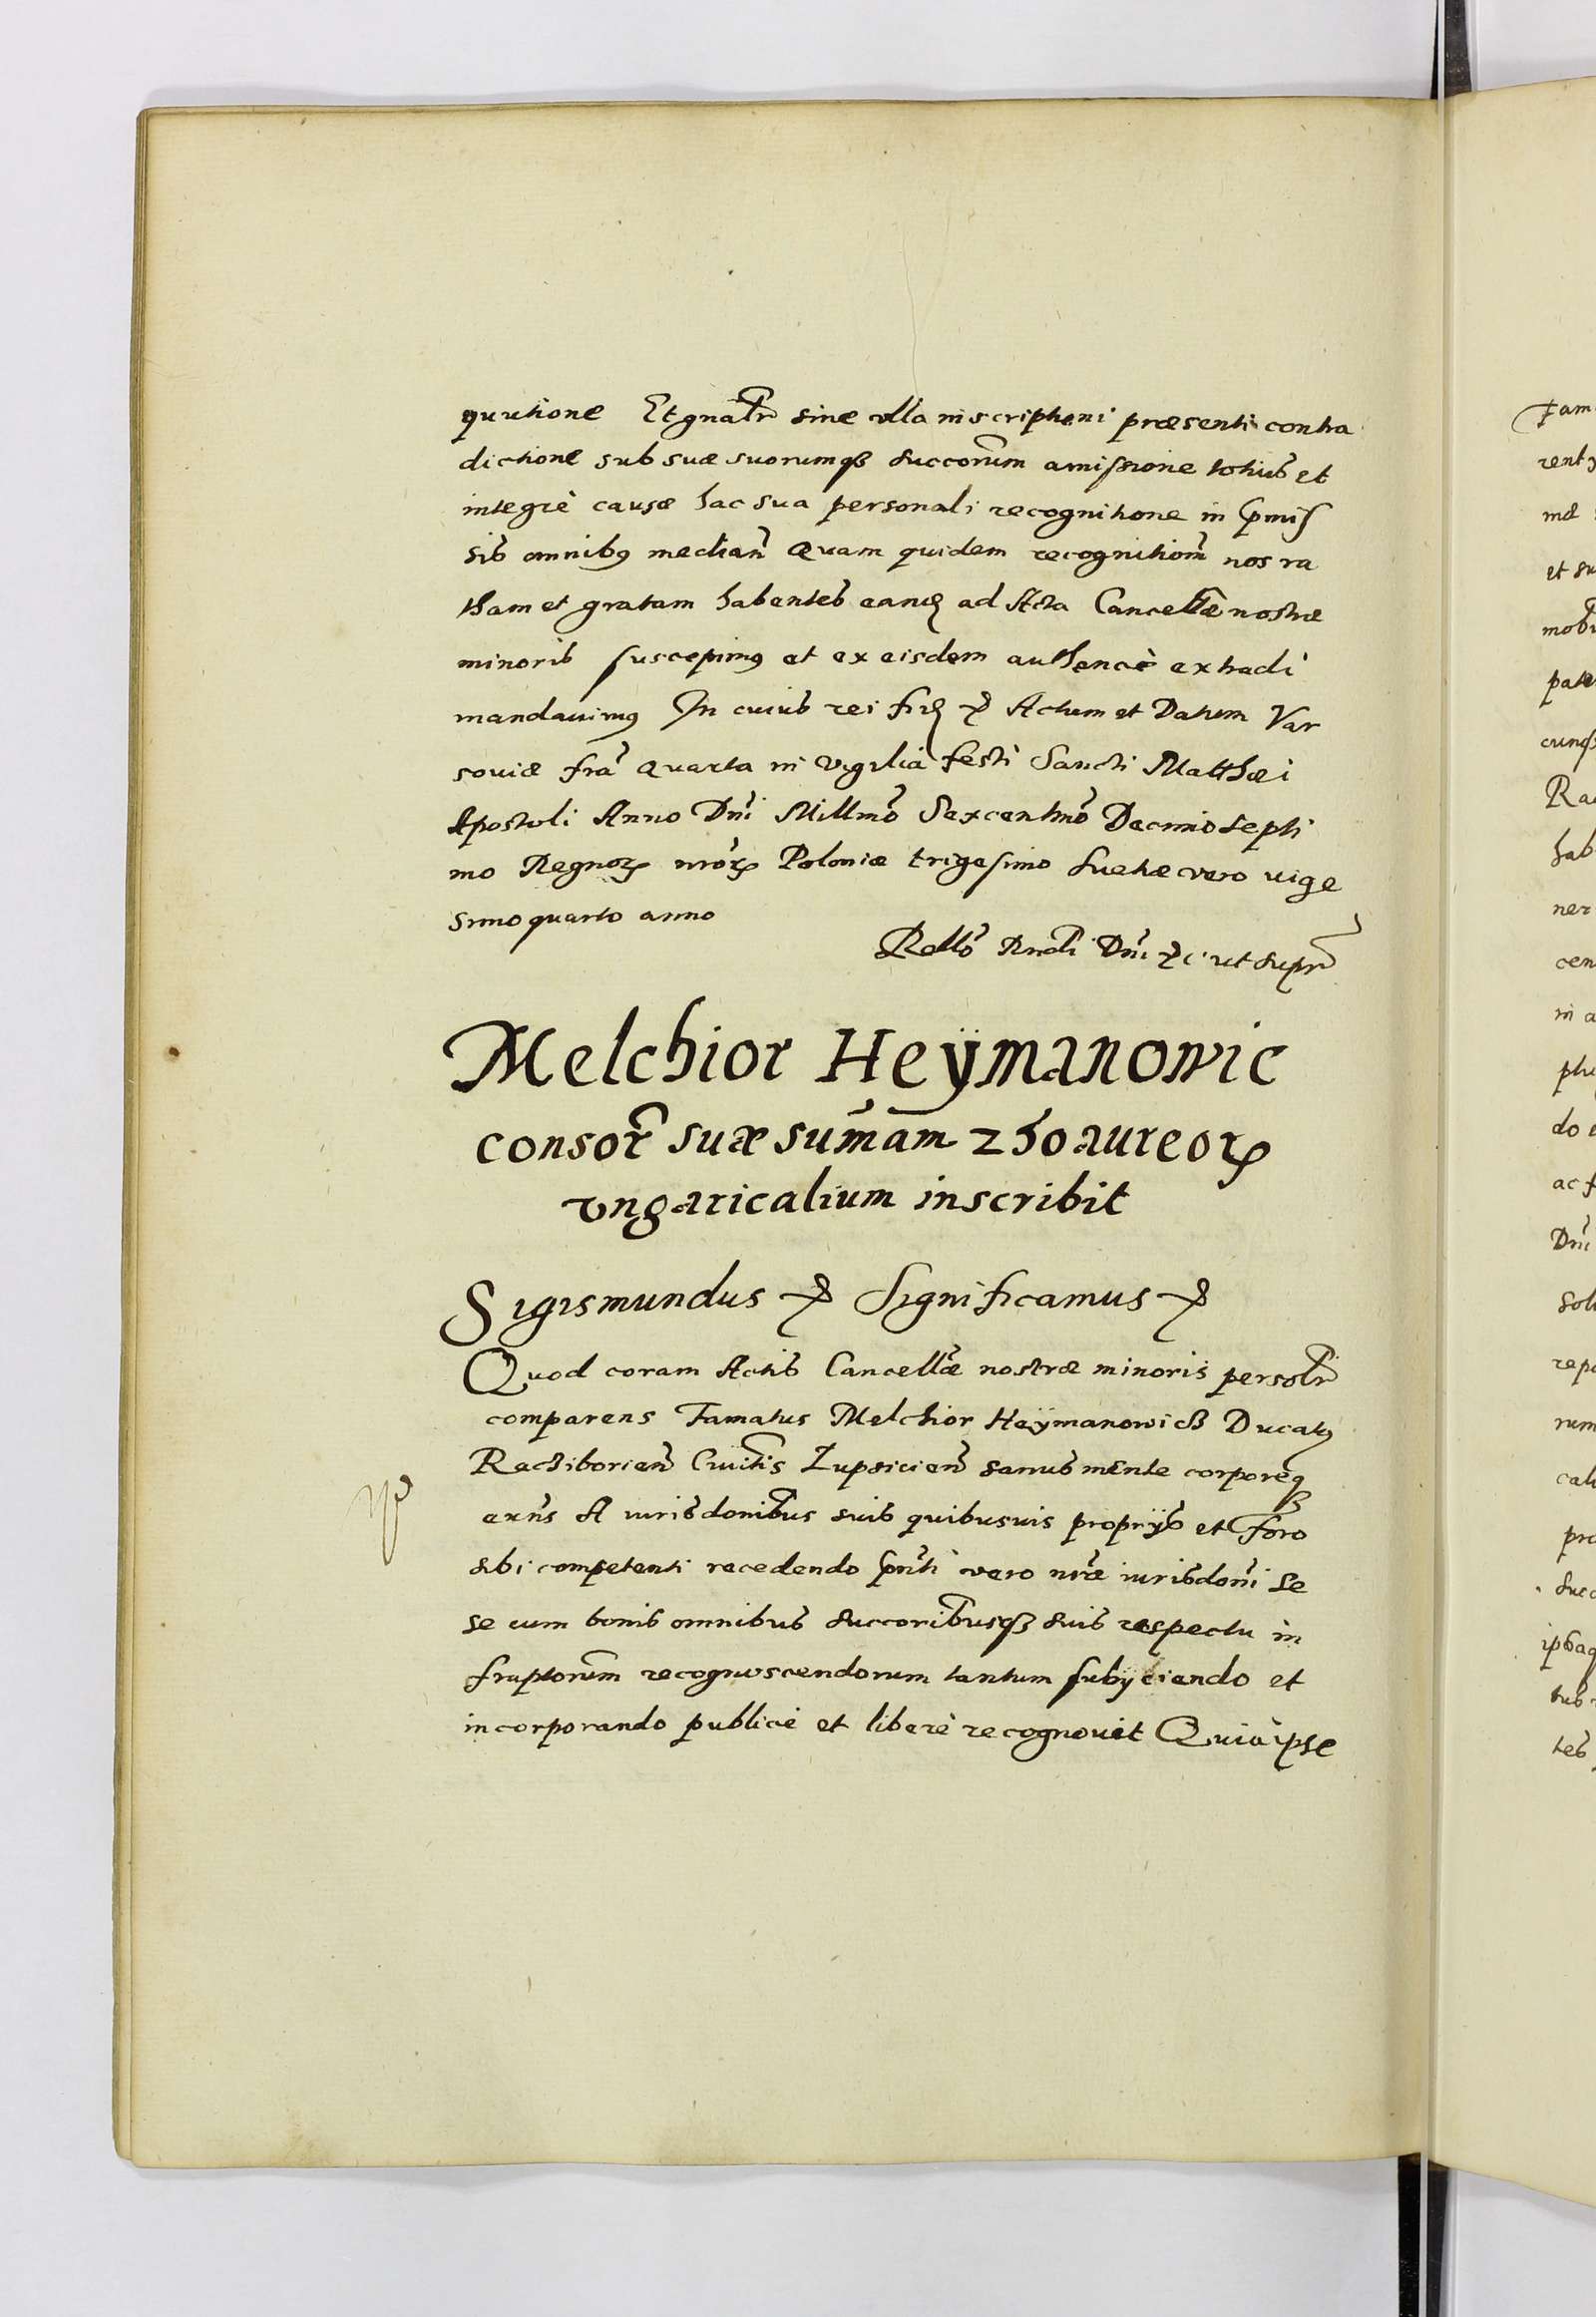 qurtione Et gnalr sine ulla inscriptioni præsenti contra
dictione sub suæ suorumq succorum amissione totius et
integrè causæ hac sua personali recognitione in pmis
sis omnibus median Quam quidem recognitiom nos ra
tham et gratam habentes eanq ad Acta Cancellæ nostræ
minoris suscepimus et ex eisdem authencè extradi
mandauimus In cuius rei fid Actum et Datum Var
souiæ fra quarta in vigilia festi Sancti Matthæi
Apostoli Anno Dni Millmo Sexcentmo Decimo septi
mo Regnor nror Poloniæ trigesimo Suetiæ vero vige
simo quarto anno
Rello Rndi Dni &c ut supr
Melchior Heÿmanowic
consor suæ summam 250 aureor
vngaricalium inscribit
Sigismundus & Significamus &
Quod coram Actis Cancellæ nostræ minoris persolr
comparens Famatus Melchior Heÿmanowicz Ducatus
Raciborien Ciuitis Zupsicien sanus mente corporeq
exns A iurisdonibus suis quibusuis proprÿs et foro
sibi competenti recedendo pnti vero nræ iurisdoni se
se cum bonis omnibus succoribusq suis respectu in
fraptorum recognoscendorum tantum subÿciendo et
incorporando publicè et liberè recognouit Quia ipse
Fam
rent
mæ
et su
pate
cunq
Ra
hab
ner
cen
in a
do
ac f
Dni
rum